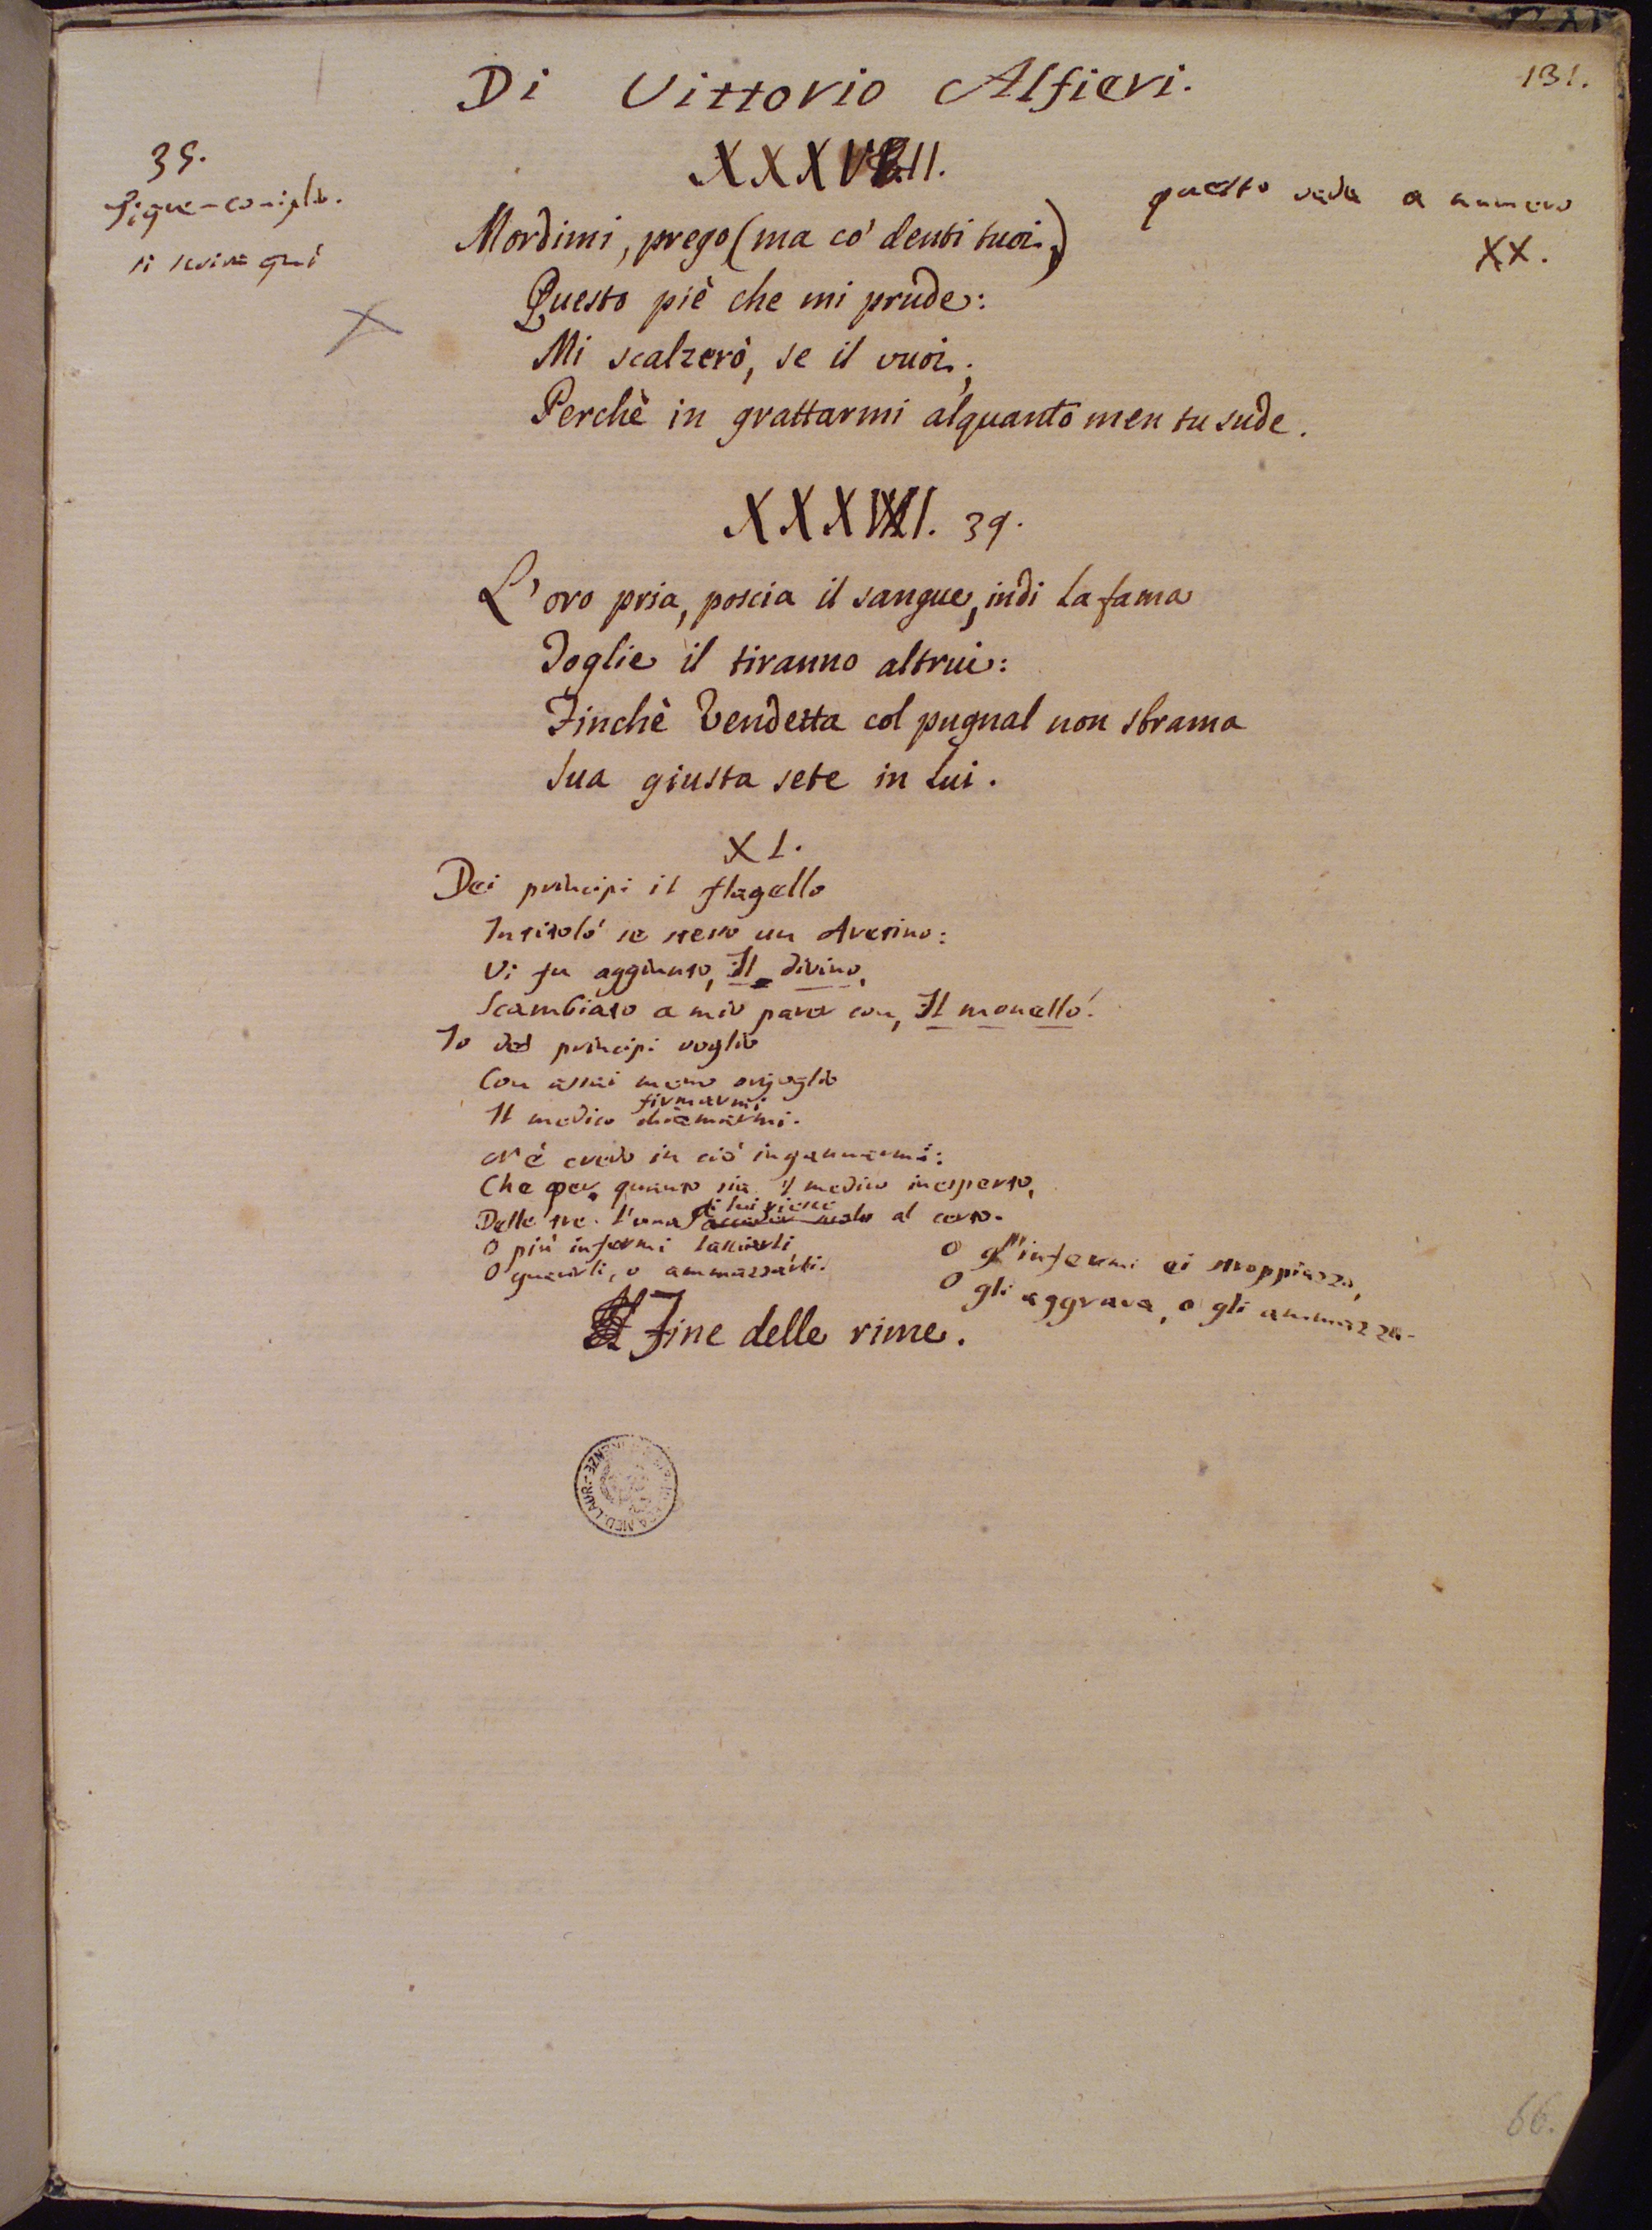 Di Vittorio Alfieri.
131.
XXXVIII.
39.
si scriva quì
questo vada a numero
XX.
Mordimi, prego (ma co' denti tuoi.)
Questo piè che mi prude:
Mi scalzerò, se il vuoi;
Perchè in grattarmi alquanto men tu sude.
XXXVIII. 39.
L'oro pria, poscia il sangue, indi la fama
Toglie il tiranno altrui:
Finchè Vendetta col pugnal non sbrama
Sua giusta sete in lui.
XL.
Dei principi il flagello
Intitolò se stesso un Aretino:
Vi fu aggiunto, Il divino,
Scambiato a mio parer con, Il monello.
Io dei principi voglio
Con assai meno orgoglio
firmarmi
Il medico chiamarmi.
Nè credo in ciò ingannarmi:
Che per quanto sia il medico inesperto,
di lui viene
Delle tre l'una al certo.
O più infermi lasciarli,
O guarirli, o ammazzarli.
O gl'infermi ei stroppiazza,
O gli aggrava, o gli ammazza.
Fine delle rime.
MED. LAUR.
66.